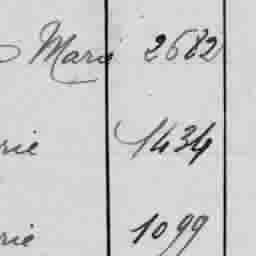 Marie 2682
rie 1434
rie 1099